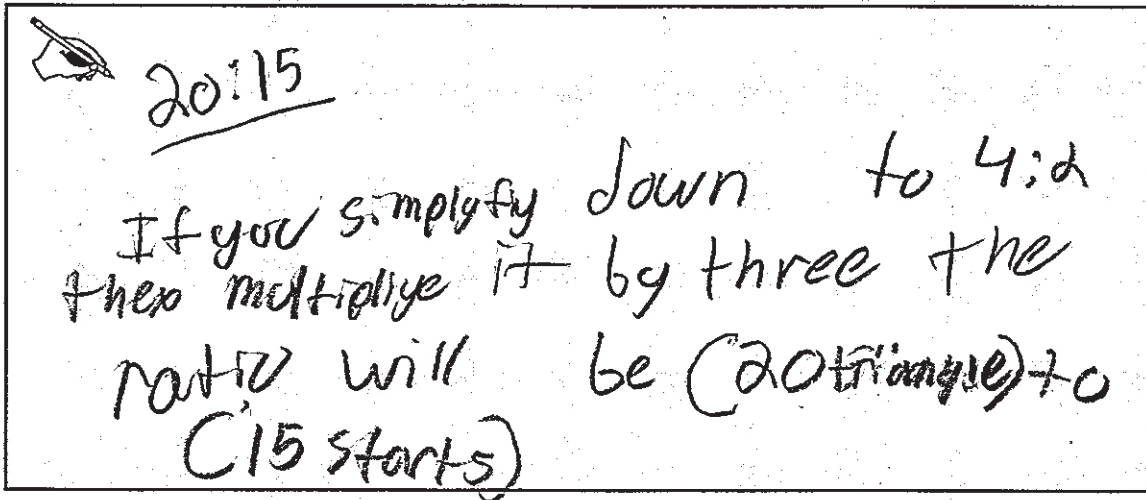 20:15
If you simplyfy down to 4:2
then multiplye it by three the
ratio will be (20 triangle) to
(15 starts)